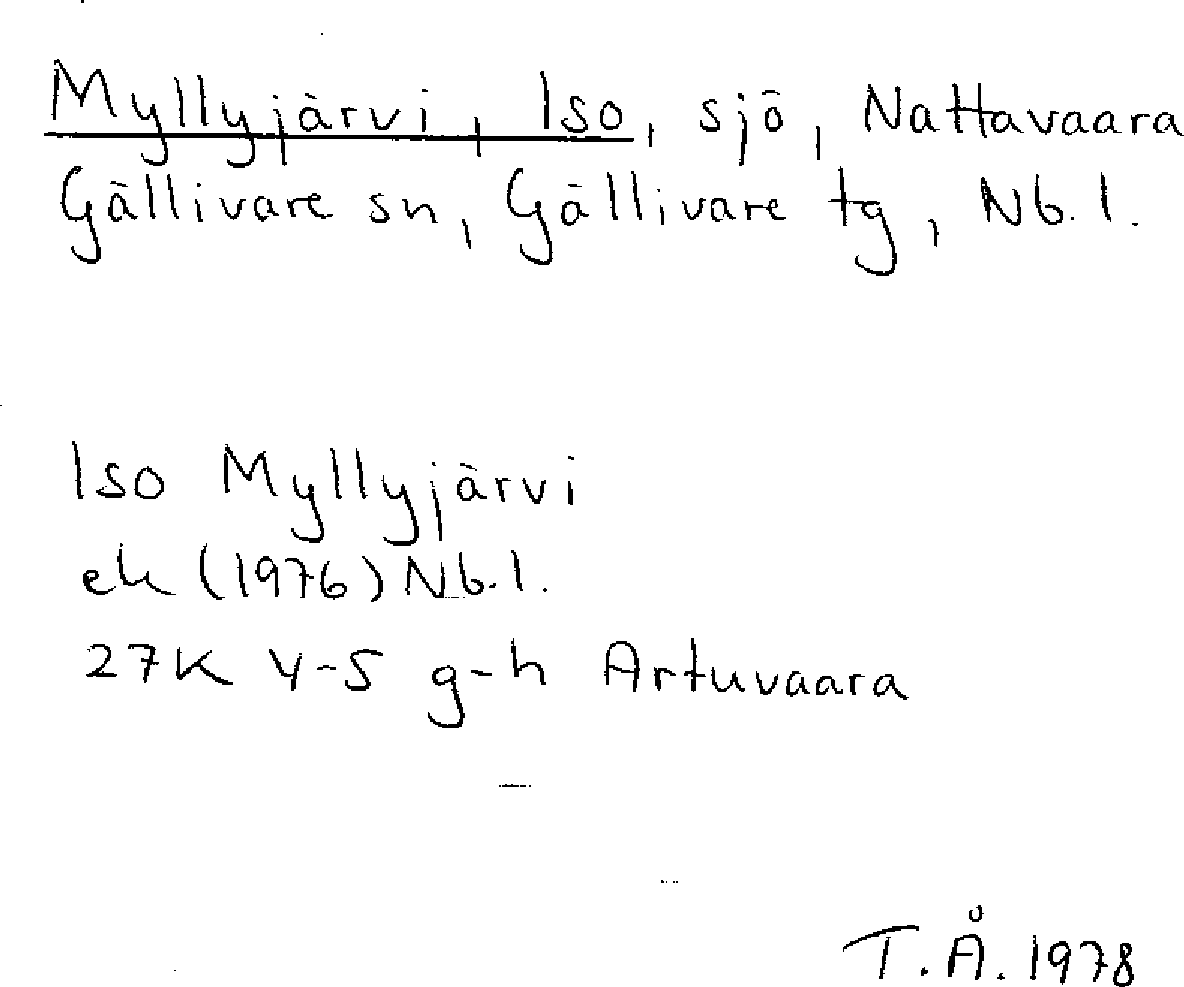 Myllyjärvi, Iso, sjö, Nattavaara
Gällivare sn, Gällivare tg, Nb. l.
Iso Myllyjärvi
ek (1976) Nb. l.
27K 4-5 g-h Artuvaara
T.Å. 1978